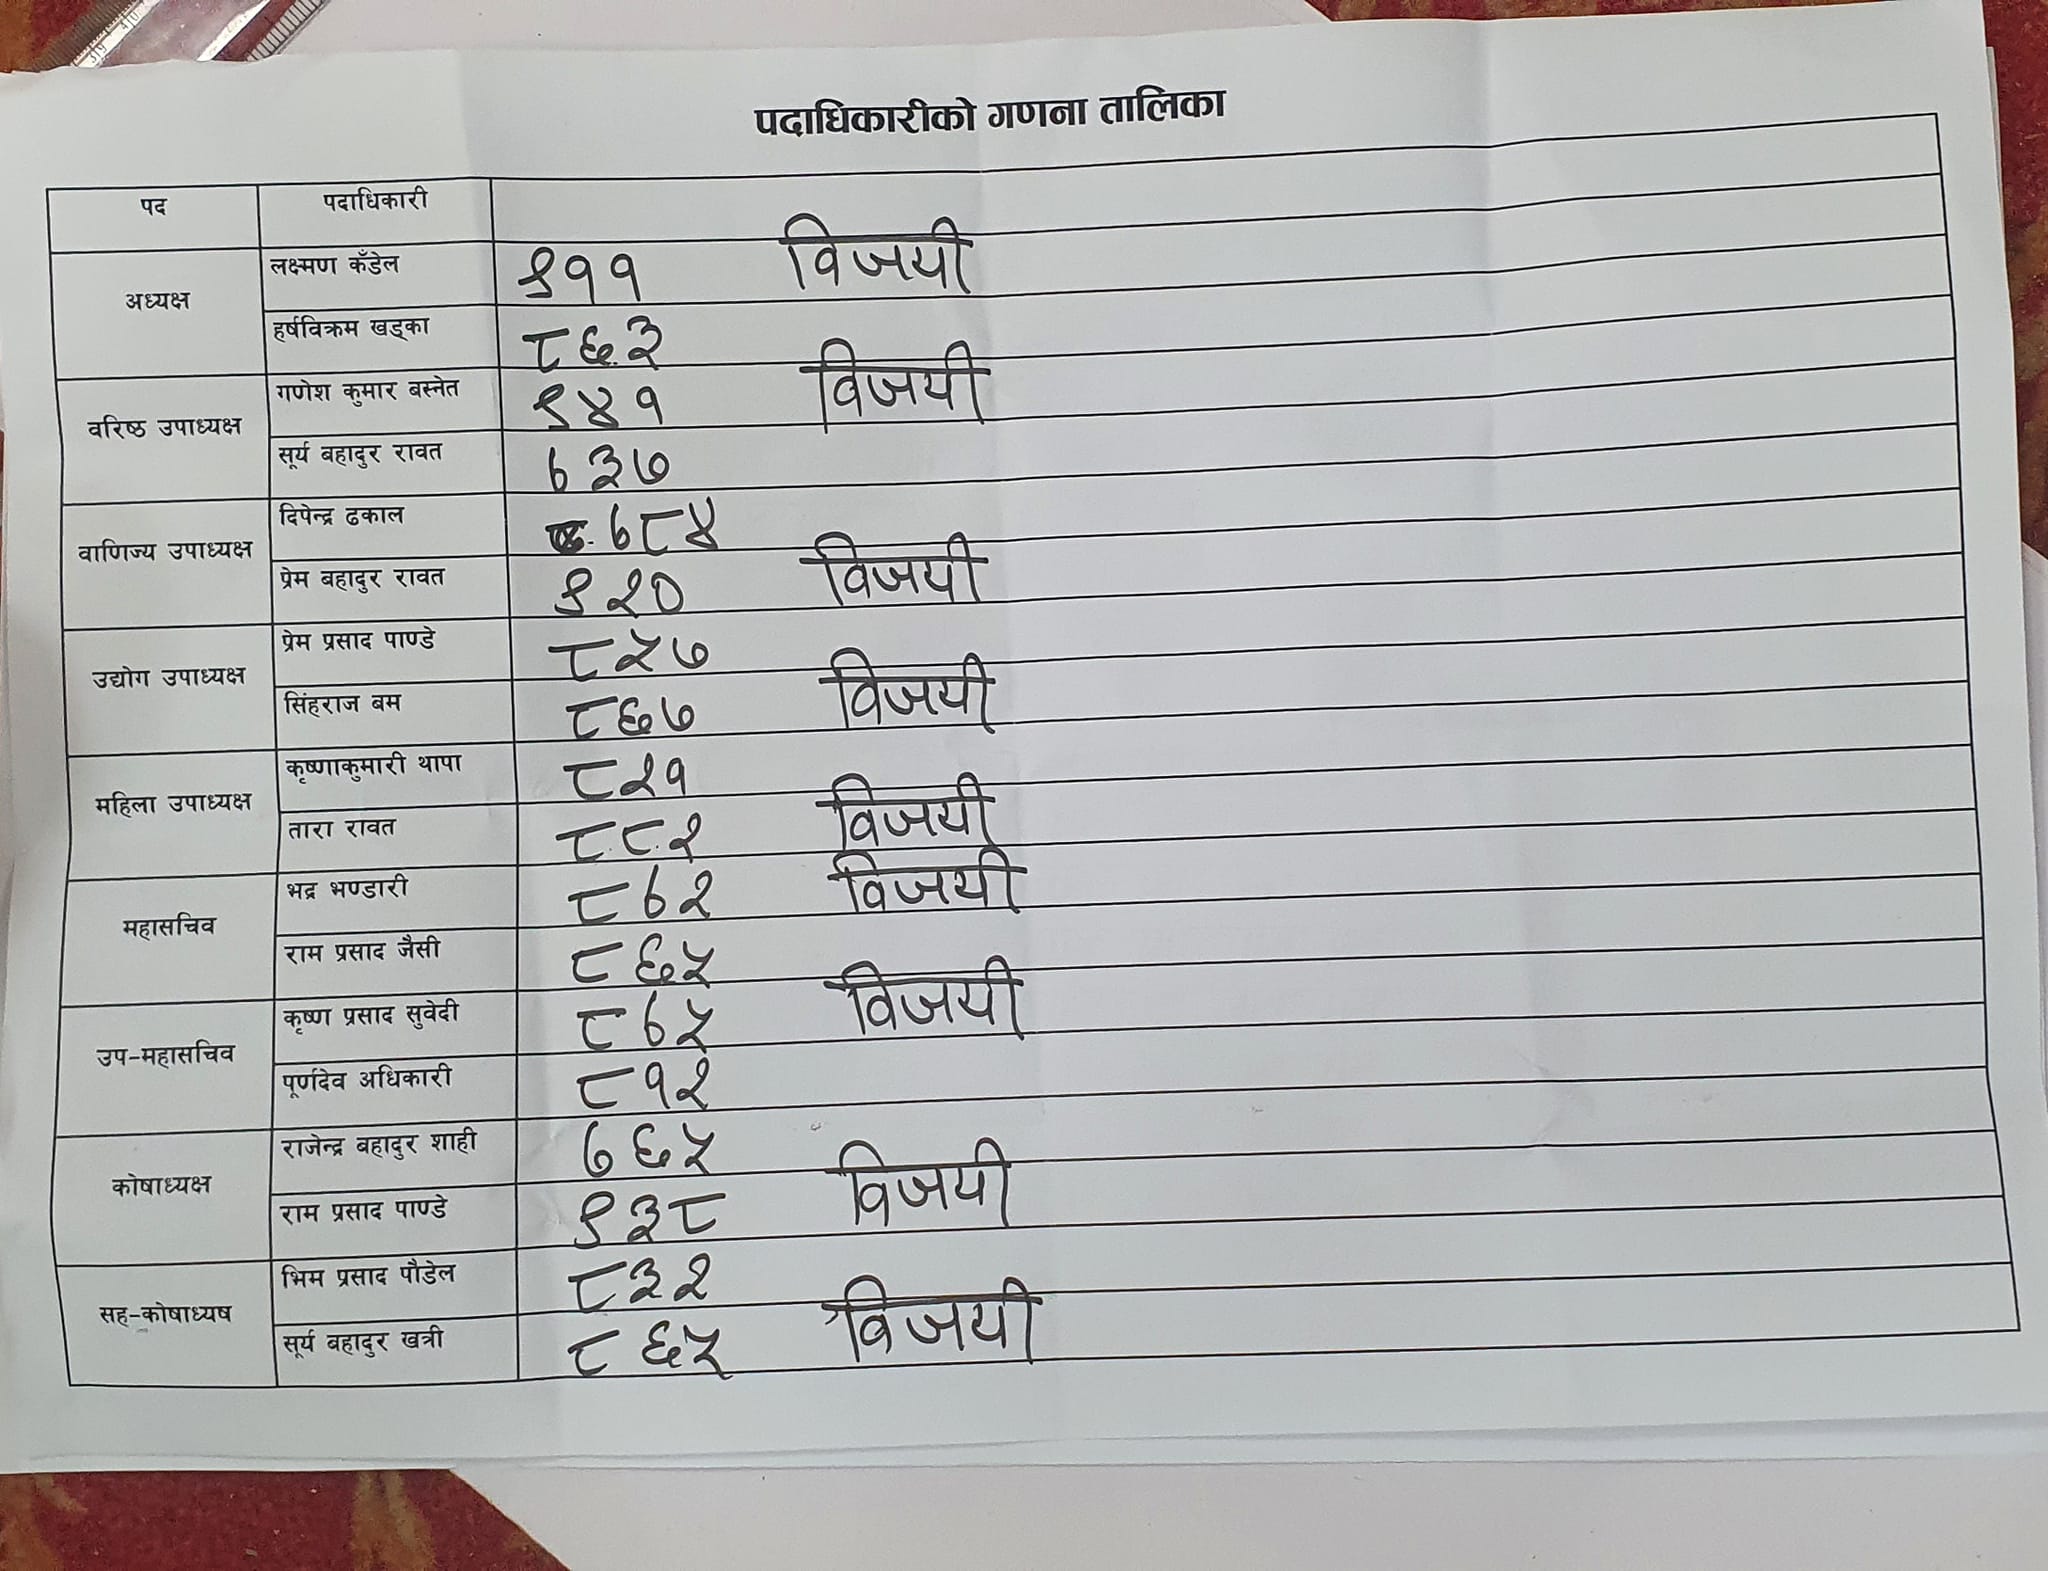 पदाधिकारीको गणना तालिका
पद पदाधिकारी
अध्यक्ष
लक्ष्मण कँडेल ९११ विजयी
हर्षविक्रम खड्का ८६३
वरिष्ठ उपाध्यक्ष
गणेश कुमार बस्नेत ९४१ विजयी
सूर्य बहादुर रावत ७३७
वाणिज्य उपाध्यक्ष
दिपेन्द्र ढकाल ७८४
प्रेम बहादुर रावत ९२० विजयी
उद्योग उपाध्यक्ष
प्रेम प्रसाद पाण्डे ८५७
सिंहराज बम ८६७ विजयी
महिला उपाध्यक्ष
कृष्णाकुमारी थापा ८२१
तारा रावत ८८२ विजयी
महासचिव
भद्र भण्डारी ८७२ विजयी
राम प्रसाद जैसी ८६५
उप-महासचिव
कृष्ण प्रसाद सुवेदी ८७५ विजयी
पूर्णदेव अधिकारी ८१२
कोषाध्यक्ष
राजेन्द्र बहादुर शाही ७६५
राम प्रसाद पाण्डे ९३८ विजयी
सह-कोषाध्यष
भिम प्रसाद पौडेल ८३२
सूर्य बहादुर खत्री ८६५ विजयी